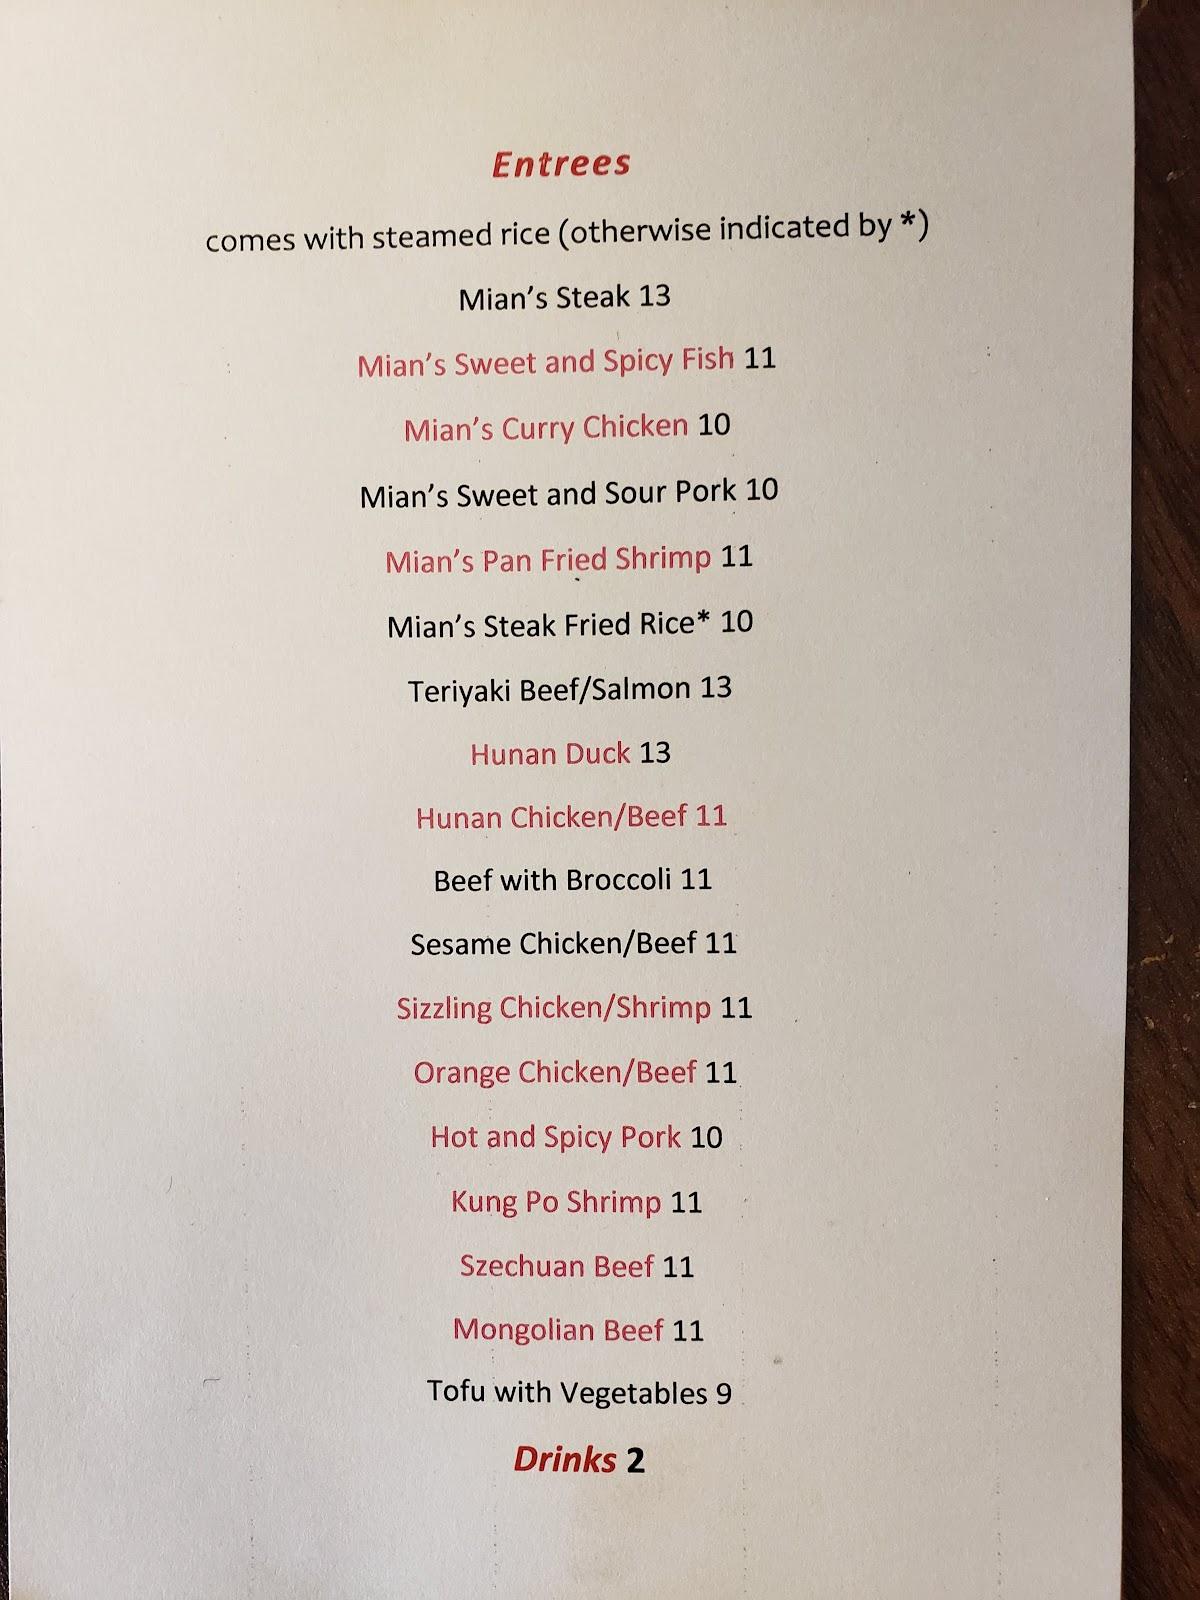 Entrees
comes with steamed rice (otherwise indicated by *)
Mian's Steak 13
Mian's Sweet and Spicy Fish 11
Mian's Curry Chicken 10
Mian's Sweet and Sour Pork 10
Mian's Pan Fried Shrimp 11
Mian's Steak Fried Rice* 10
Teriyaki Beef/Salmon 13
Hunan Duck 13
Hunan Chicken/Beef 11
Beef with Broccoli 11
Sesame Chicken/Beef 11
Sizzling Chicken/Shrimp 11
Orange Chicken/Beef 11
Hot and Spicy Pork 10
Kung Po Shrimp 11
Szechuan Beef 11
Mongolian Beef 11
Tofu with Vegetables 9
Drinks 2